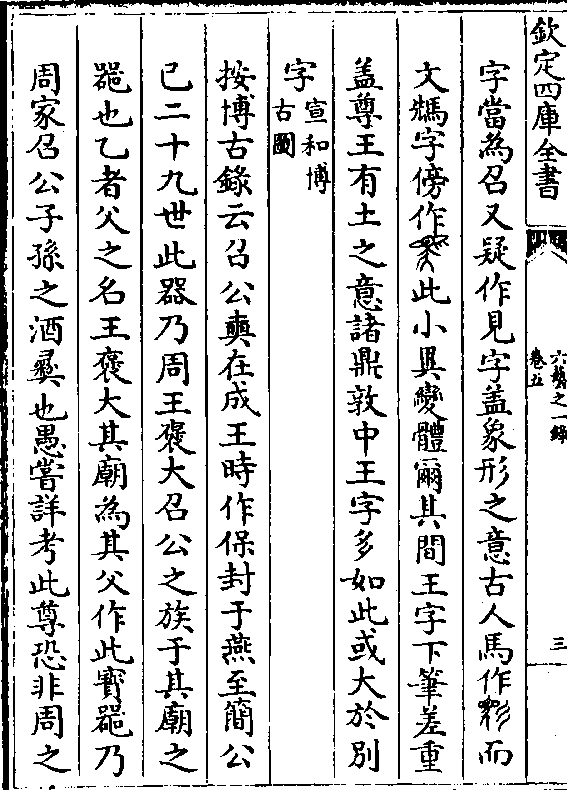 欽定四庫全書
六藝之一錄
卷五
三
字當為召又疑作見字盖象形之意古人馬作而
文䲴字傍作此小異變體爾其間王字下筆差重
盖尊王有土之意諸鼎敦中王字多如此或大於別
字宣和博
古圖
按博古錄云召公奭在成王時作保封于燕至簡公
已二十九世此器乃周王褒大召公之族于其廟之
器也乙者父之名王褒大其廟為其父作此寶器乃
周家召公子孫之酒彞也愚嘗詳考此尊恐非周之